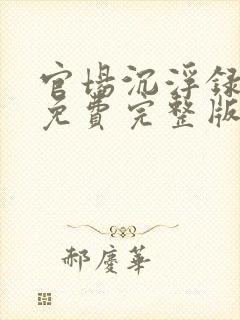 官場沉浮録
免費完整版
郝慶華